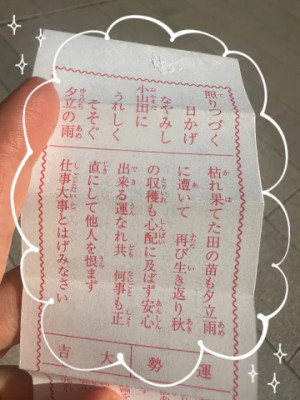 照りつづく
日かげ
なやみし
小山田に
うれしく
そそぐ
夕立の雨
枯れ果てた田の苗も夕立雨
に遭いて 再び生き返り秋
の収穫も心配に及ばず安心
出来る運なれ共 何事も正
直にして他人を恨まず
仕事大事とはげみなさい
運勢 大吉